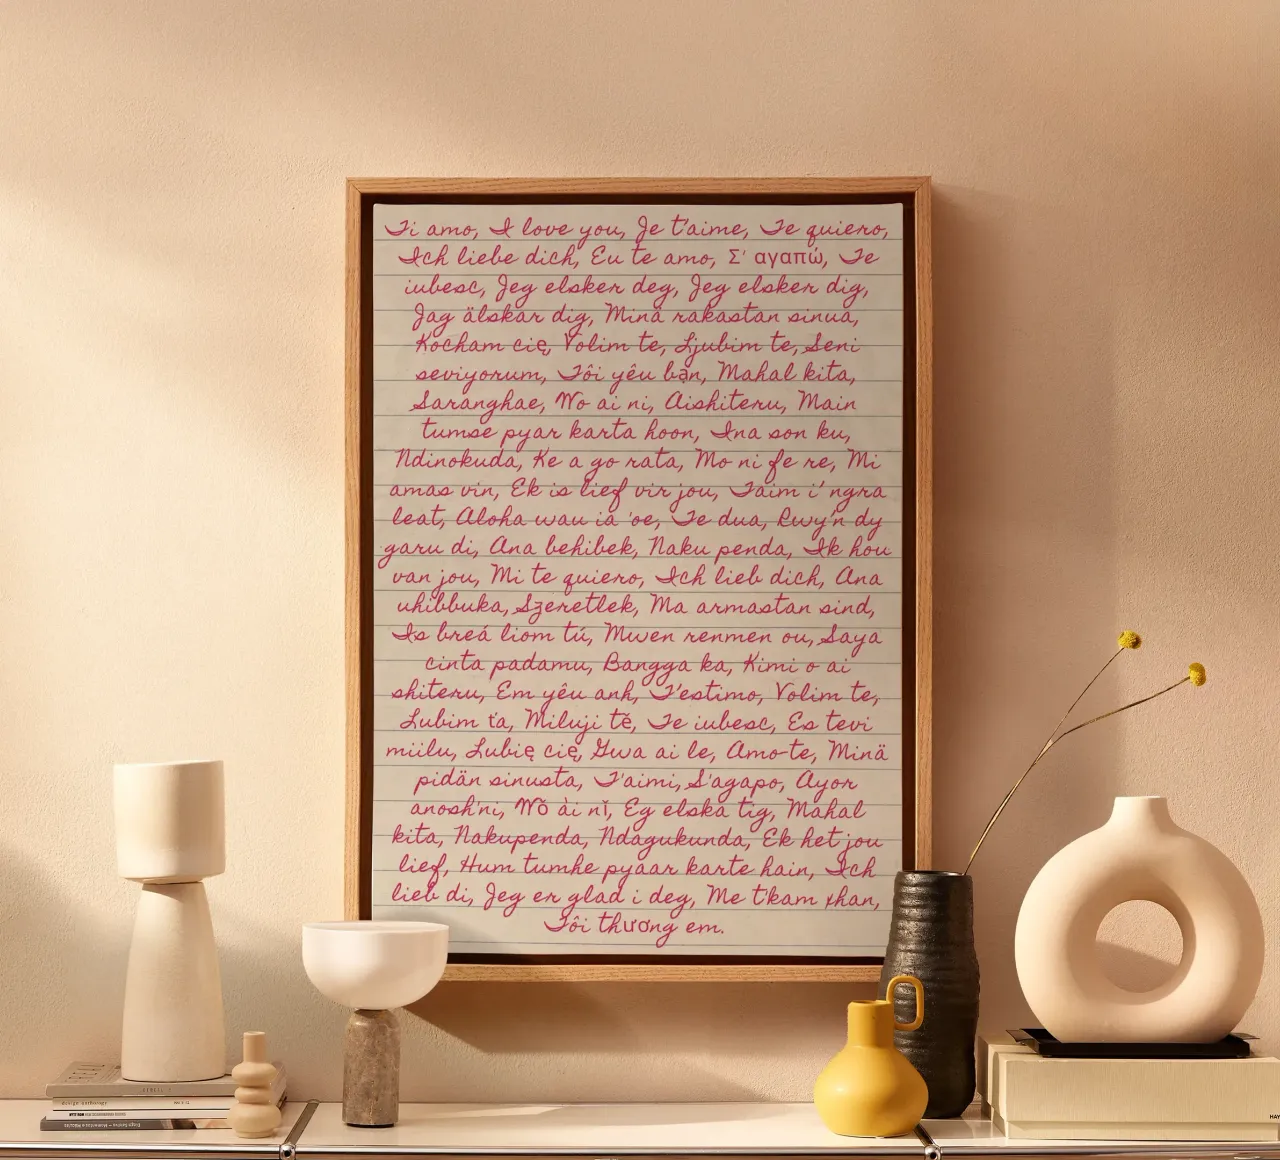 Ti amo, I love you, Je t'aime, Te quiero,
Ich liebe dich, Eu te amo, Σ' αγαπώ, Te
iubesc, Jeg elsker deg, Jeg elsker dig,
Jag älskar dig, Minä rakastan sinua,
Kocham cię, Volim te, Ljubim te, Seni
seviyorum, Tôi yêu bạn, Mahal kita,
Saranghae, Wo ai ni, Aishiteru, Main
tumse pyar karta hoon, Ina son ku,
Ndinokuda, Ke a go rata, Mo ni fe re, Mi
amas vin, Ek is lief vir jou, Taim i' ngra
leat, Aloha wau ia 'oe, Te dua, Rwy'n dy
garu di, Ana behibek, Naku penda, Ik hou
van jou, Mi te quiero, Ich lieb dich, Ana
uhibbuka, Szeretlek, Ma armastan sind,
Is breá liom tú, Mwen renmen ou, Saya
cinta padamu, Bangga ka, Kimi o ai
shiteru, Em yêu anh, T'estimo, Volim te,
Lubim ťa, Miluji tě, Te iubesc, Es tevi
miilu, Lubię cię, Gwa ai le, Amo-te, Minä
pidän sinusta, T'aimi, S'agapo, Ayor
anosh'ni, Wǒ ài nǐ, Eg elska tig, Mahal
kita, Nakupenda, Ndagukunda, Ek het jou
lief, Hum tumhe pyaar karte hain, Ich
lieb di, Jeg er glad i deg, Me t'kam xhan,
Tôi thương em.
design anthology
HAY